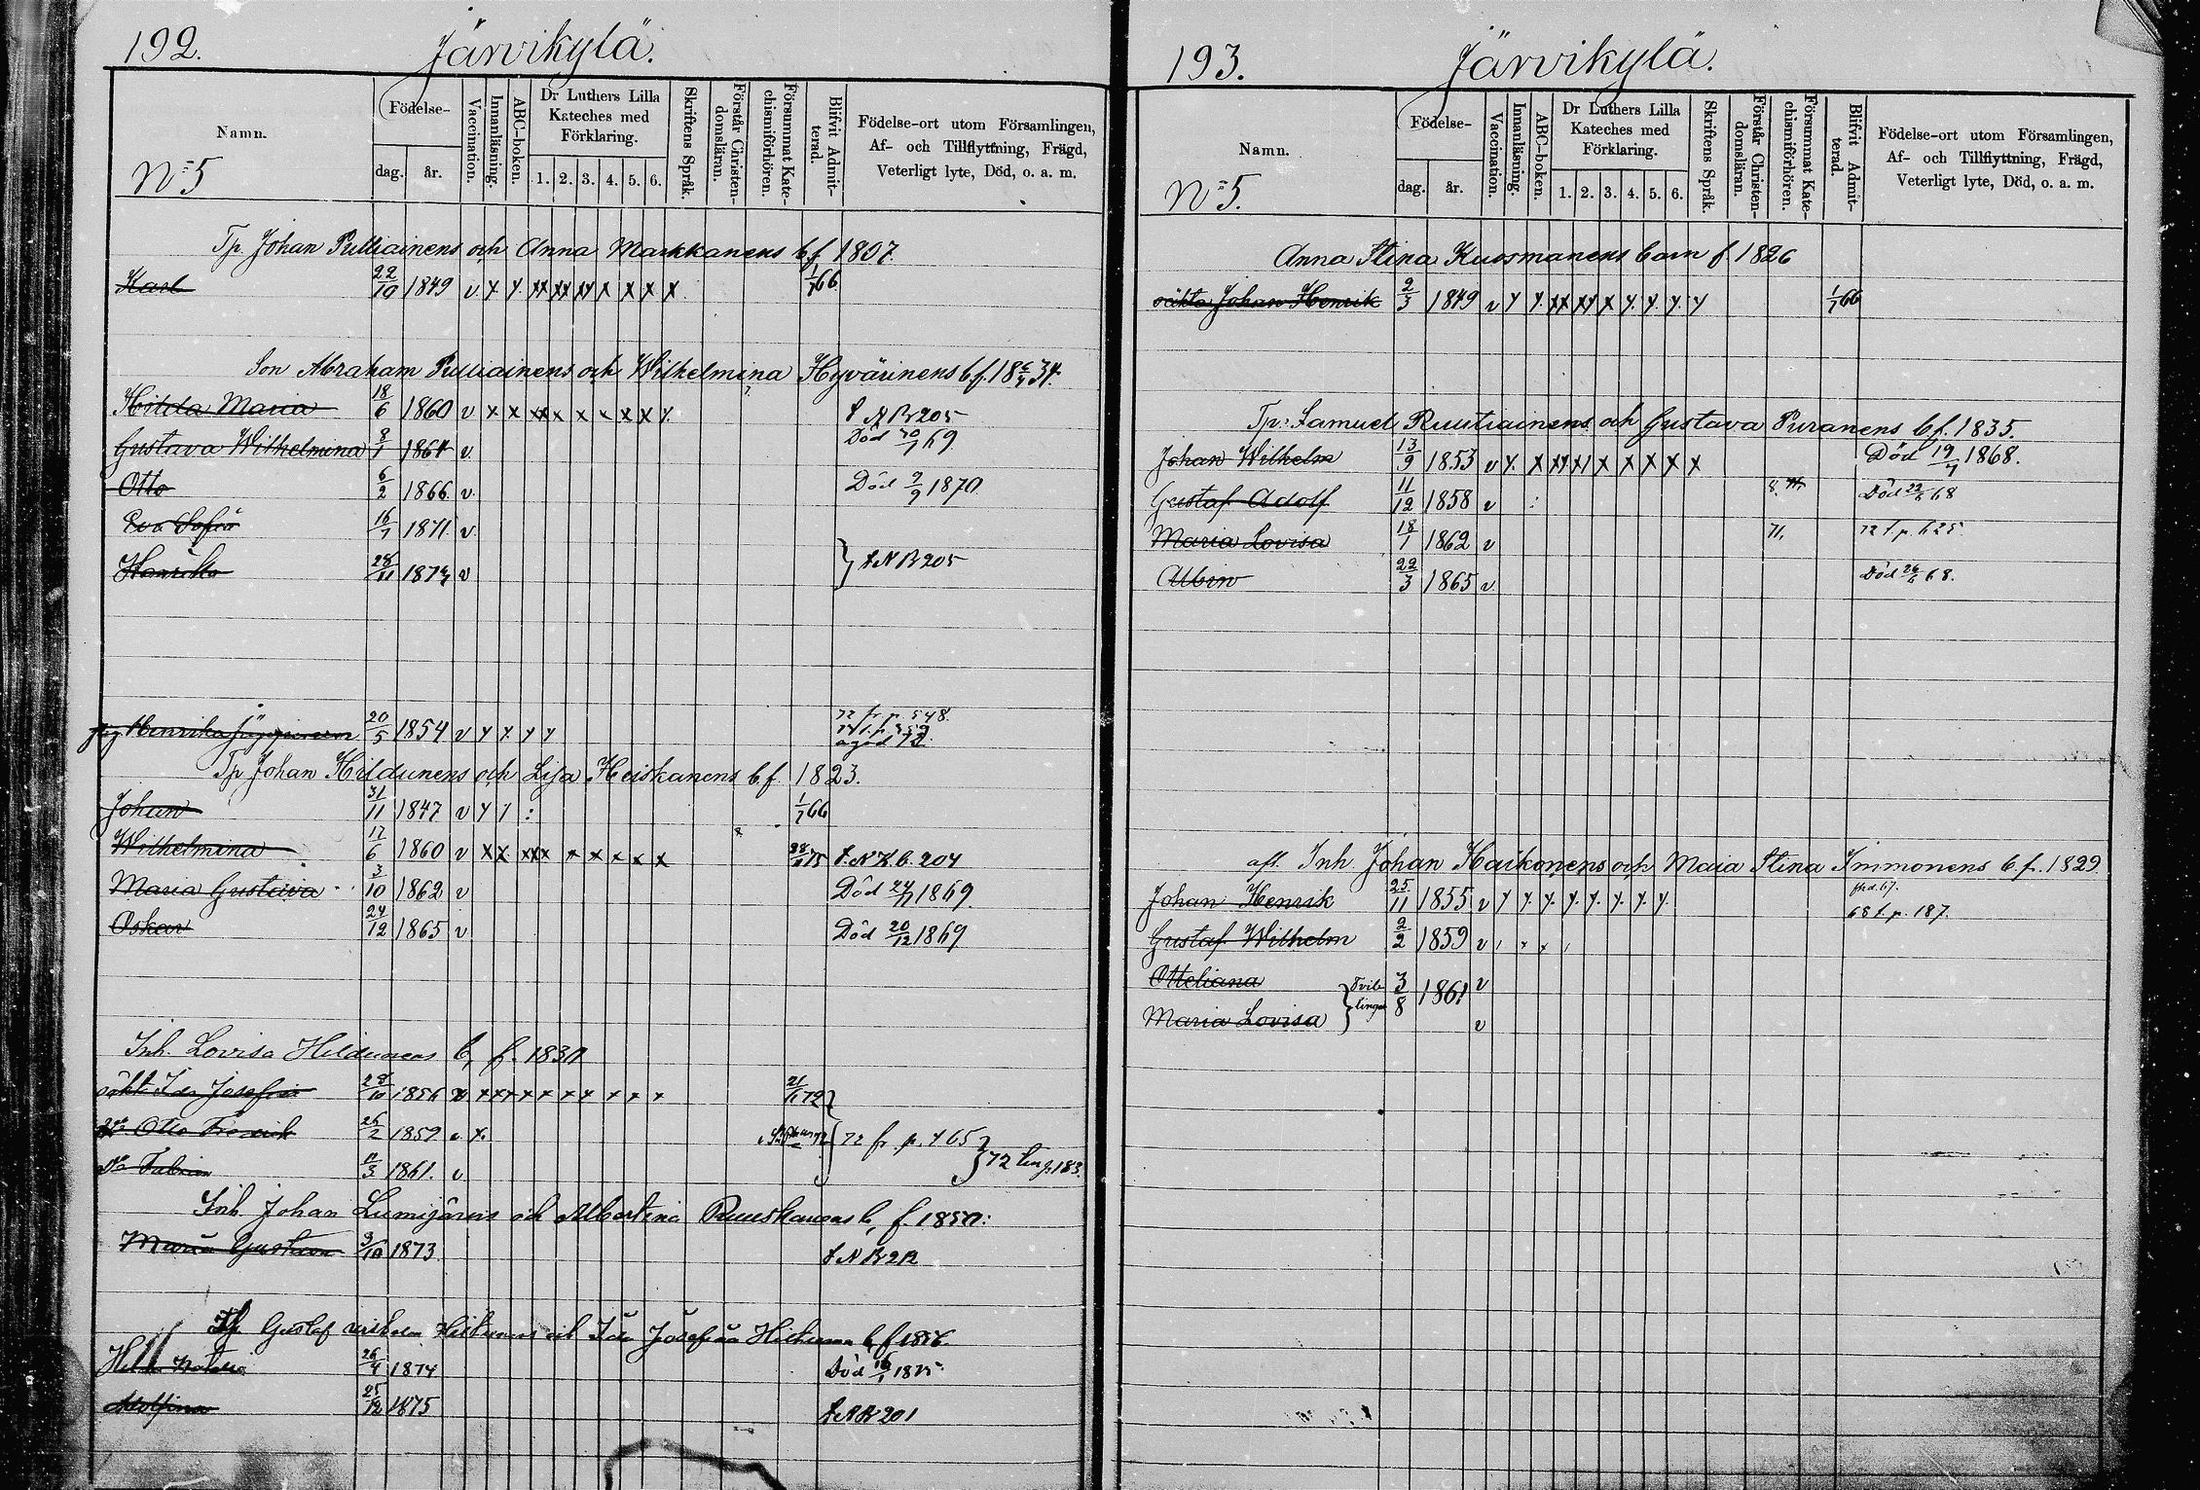 192.
Järvikylä.
Namn.
Födelse-
dag.
år.
Vaccination.
Innanläsning.
ABC-boken.
Dr Luthers Lilla
Kateches med
Förklaring.
1. 2. 3. 4. 5. 6.
Skriftens Språk.
Förstår Christen-
domsläran.
Försummat Kate-
chismiförhören.
Blifvit Admit-
terad.
Födelse-ort utom Församlingen,
Af- och Tillflyttning, Frägd,
Veterligt lyte, Död, o. a. m.
N:5
Tp Johan Pulliainens och Anna Markkanens b f. 1807
Karl 22/10 1849 v x x xx xx xx x x x x 1/7 66
Son Abraham Pulliainens och Wilhelmina Hyvärinens b f. 18 34.
Hilda Maria 18/6 1860 v x x xx x x x x x x. f. N B 205
Gustava Wilhelmina 8/1 1864 v. Död 69.
Otto 6/2 1866 v. Död 9/9 1870
Eva Sofia 16/7 1871. v.
Henrikka 28/11 187 v } f. N B 205
Henrika 20/5 1854 v x x x x 72 fr p. 548.
Tp Johan Hildunens och Lisa Heiskanens b f. 1823.
Johan 31/11 1847 v x / : 1/7 66
Wilhelmina 17/6 1860 v x x xxx x x x x x 75 f. N B. 204
Maria Gustava 3/10 1862 v Död 1869.
Oskar 24/12 1865 v Död 20/12 1869
Inh. Lovisa Hildunens b, f. 1830
oäkt. Ida Josefina 28/10 1856 v x x x x x x x x x x 21/6 72 }
Do Otto Fredrik 26/2 1859 v x. 72 fr. p. 465 } 72 183.
Do Fabian 11/3 1861. v.
Inh. Johan Lumijärvis och Albertina Ruuskanens b, f. 1850:
Maria Gustava 9/10 1873 f. N B 212
Gustaf Hiltunens och Ida Josefina Hiltunens b, f 1856.
26/4 1874 Död 1875
Adolfina 25/12 1875 f. N B 201
193.
Järvikylä.
Namn.
Födelse-
dag.
år.
Vaccination.
Innanläsning.
ABC-boken.
Dr Luthers Lilla
Kateches med
Förklaring.
1. 2. 3. 4. 5. 6.
Skriftens Språk.
Förstår Christen-
domsläran.
Försummat Kate-
chismiförhören.
Blifvit Admit-
terad.
Födelse-ort utom Församlingen,
Af- och Tillflyttning, Frägd,
Veterligt lyte, Död, o. a. m.
N:5.
Anna Stina Kuosmanens barn f. 1826
oäkta Johan Henrik 2/3 1849 v x x xx xx x x x x x 1/7 66
Tp: Samuel Ruutiainens och Gustava Puranens b f. 1835.
Johan Wilhelm 13/9 1853 v x. x xx xx x x x x x Död 19/7 1868.
Gustaf Adolf 11/12 1858 v : Död 68
Maria Lovisa 18/1 1862 v 71, 72 t. p. 625.
Albin 22/3 1865 v Död 68.
aft. Inh Johan Haikonens och Maria Stina Immonens b. f. 1829.
Johan Henrik 25/11 1855 v x x x x x x x 68 t. p. 187.
Gustaf Wilhelm 2/2 1859 v
Otteliana } Tvil- 3/8 1861 v
Maria Lovisa } lingar v